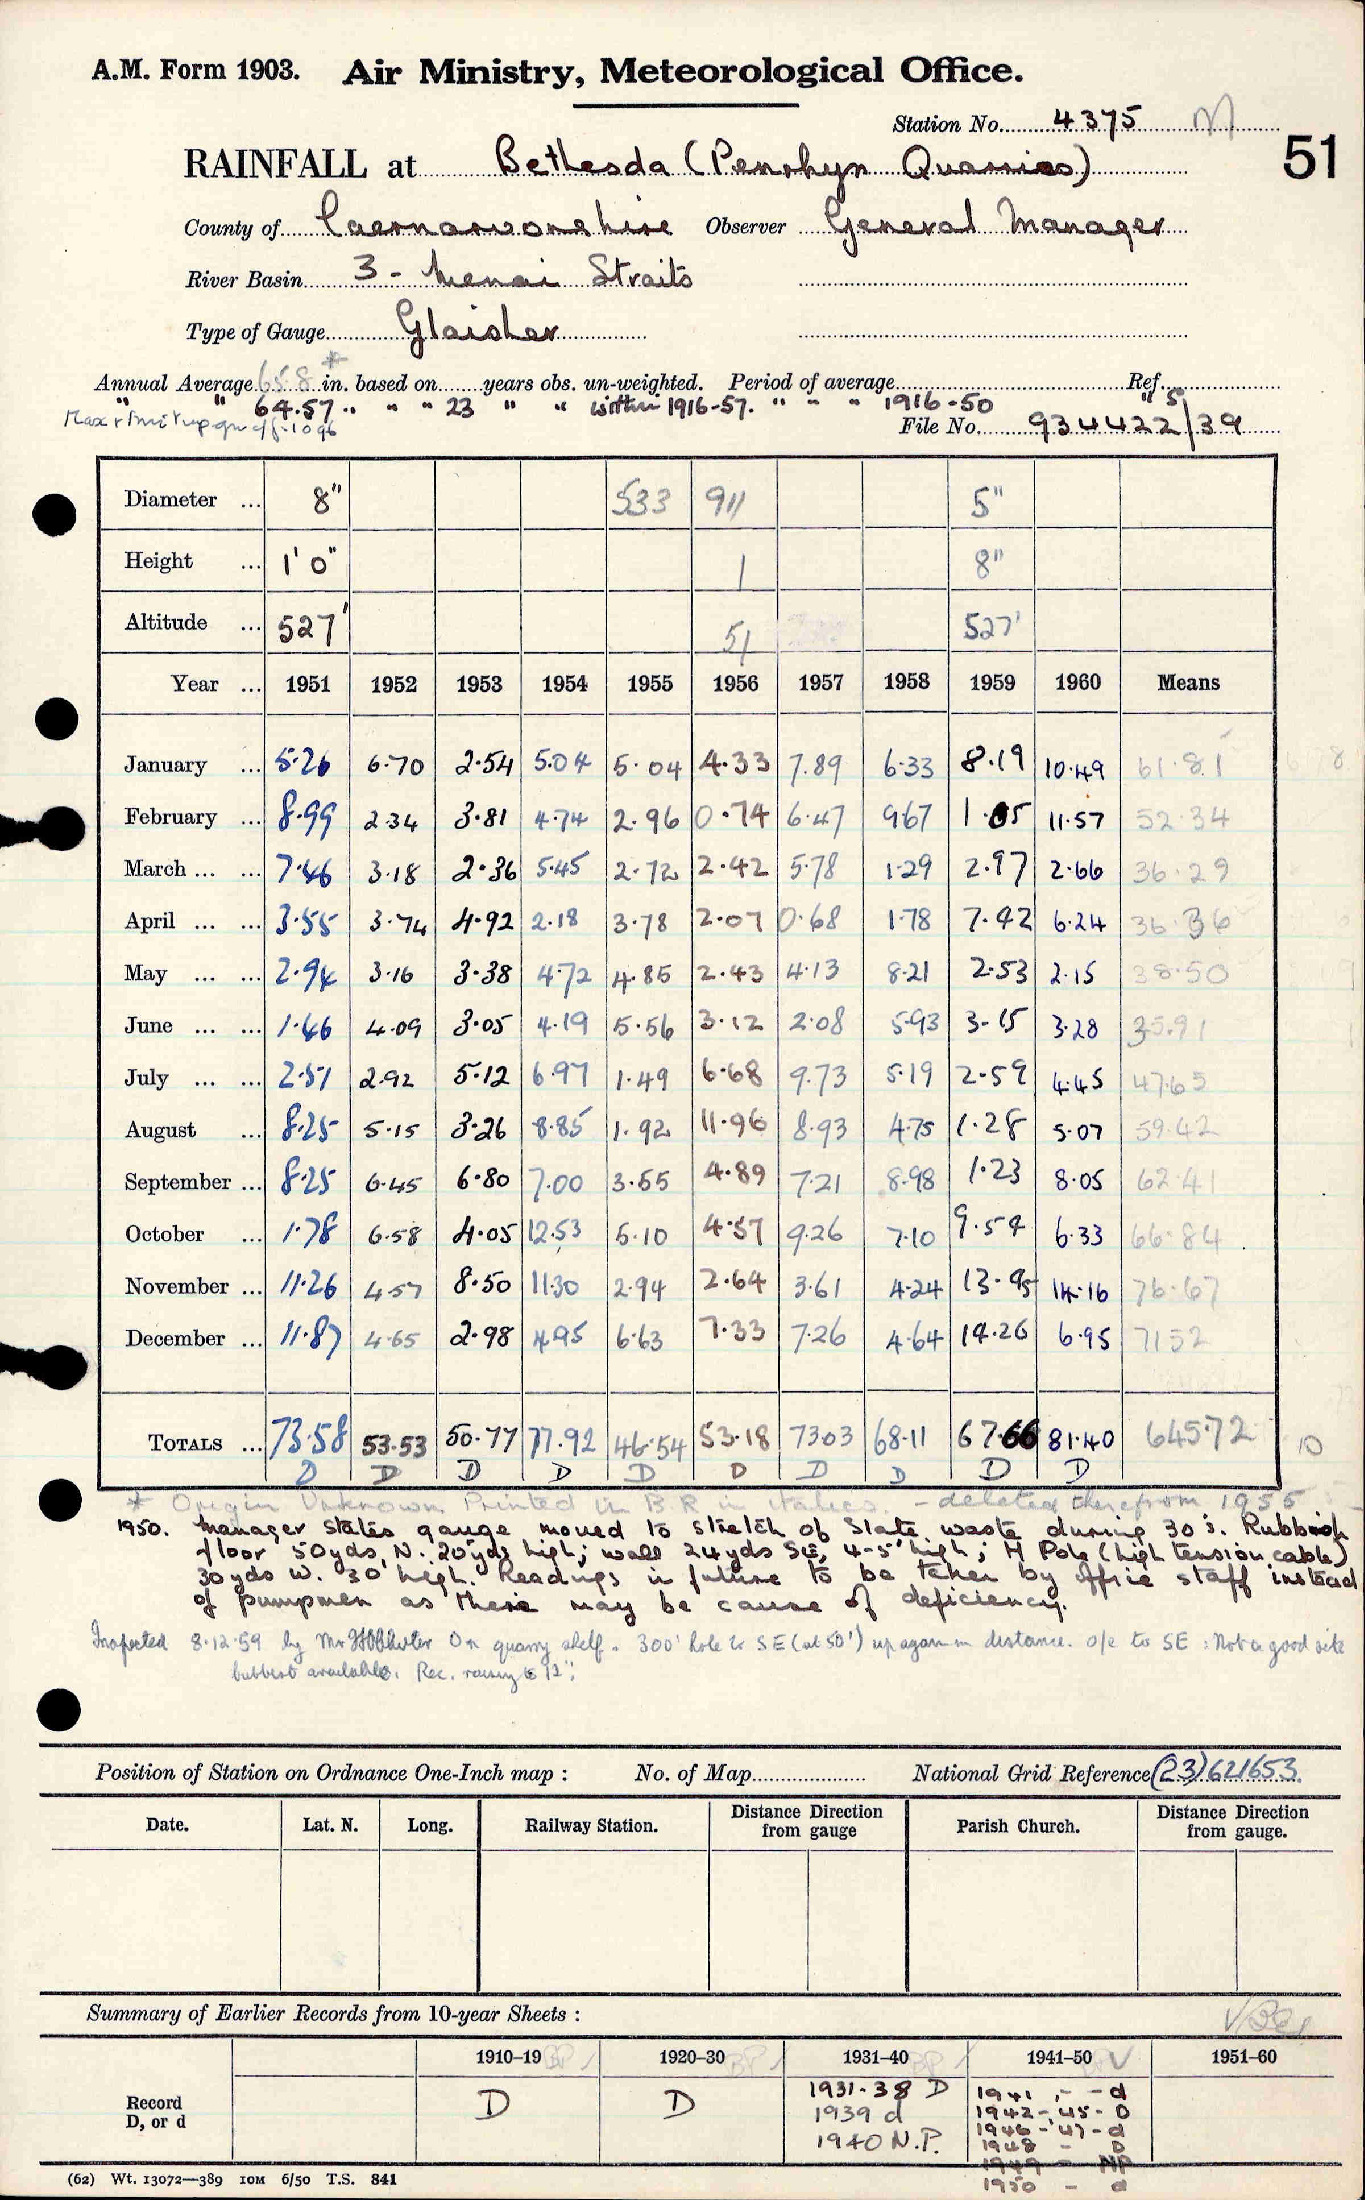 A.M. Form 1903. Air Ministry, Meteorological Office.
Station No. 4375 M
51
RAINFALL at Bethesda (Penrhyn Quarries)
County of Caernarvonshire Observer General Manager
River Basin 3 - Menai Straits
Type of Gauge Glaisher
Annual Average 65.8 * in. based on years obs. un-weighted. Period of average Ref.
" " 64.57 " " " 23 " " within 1916-57. " " " 1916-50 "S"
File No. 934422/39
Diameter ... 8" 533 911 5"
Height ... 1' 0" 1 8"
Altitude ... 527' 51 527'
Year ... 1951 1952 1953 1954 1955 1956 1957 1958 1959 1960 Means
January ... 5.26 6.70 2.54 5.04 5.04 4.33 7.89 6.33 8.19 10.49 61.81
February ... 8.99 2.34 3.81 4.74 2.96 0.74 6.47 9.67 1.05 11.57 52.34
March ... ... 7.46 3.18 2.36 5.45 2.72 2.42 5.78 1.29 2.97 2.66 36.29
April ... ... 3.55 3.74 4.92 2.18 3.78 2.07 0.68 1.78 7.42 6.24 36.36
May ... ... 2.94 3.16 3.38 4.72 4.85 2.43 4.13 8.21 2.53 2.15 38.50
June ... ... 1.46 4.09 3.05 4.19 5.56 3.12 2.08 5.93 3.15 3.28 35.91
July ... ... 2.51 2.92 5.12 6.97 1.49 6.68 9.73 5.19 2.59 4.45 47.65
August ... 8.25 5.15 3.26 8.85 1.92 11.96 8.93 4.75 1.28 5.07 59.42
September ... 8.25 6.45 6.80 7.00 3.55 4.89 7.21 8.98 1.23 8.05 62.41
October ... 1.78 6.58 4.05 12.53 5.10 4.57 9.26 7.10 9.54 6.33 66.84
November ... 11.26 4.57 8.50 11.30 2.94 2.64 3.61 4.24 13.45 14.16 76.67
December ... 11.87 4.65 2.98 4.95 6.63 7.33 7.26 4.64 14.26 6.95 71.52
TOTALS ... 73.58 53.53 50.77 77.92 46.54 53.18 73.03 68.11 67.66 81.40 645.72 10
D D D D D D D D D D
* Origin Unknown Printed in B.R in italics. - deleted therefrom 1955
1950. Manager states gauge moved to stretch of slate waste during 30's. Rubbish
floor 50yds N. 20yds high; wall 24yds SE, 4-5' high; H Pole (high tension cable)
30yds W. 30' high. Readings in future to be taken by office staff instead
of pumpmen as there may be cause of deficiency.
Inspected 8.12.59 by Mr On quarry shelf - 300' hole to SE (at 50') up again in distance. o/e to SE : Not a good site
but best available. Rec. raising to 12";
Position of Station on Ordnance One-Inch map : No. of Map National Grid Reference (23) 621653
Date. Lat. N. Long. Railway Station. Distance Direction from gauge Parish Church. Distance Direction from gauge.
Summary of Earlier Records from 10-year Sheets :
1910–19 1920–30 1931–40 1941–50 1951–60
Record D, or d
D D
1931-38 D
1939 d
1940 N.P.
1941 - - d
1942-'45 - D
1946-'47 - d
1948 - D
1949 - NP
1950 - d
(62) Wt. 13072—389 10M 6/50 T.S. 841